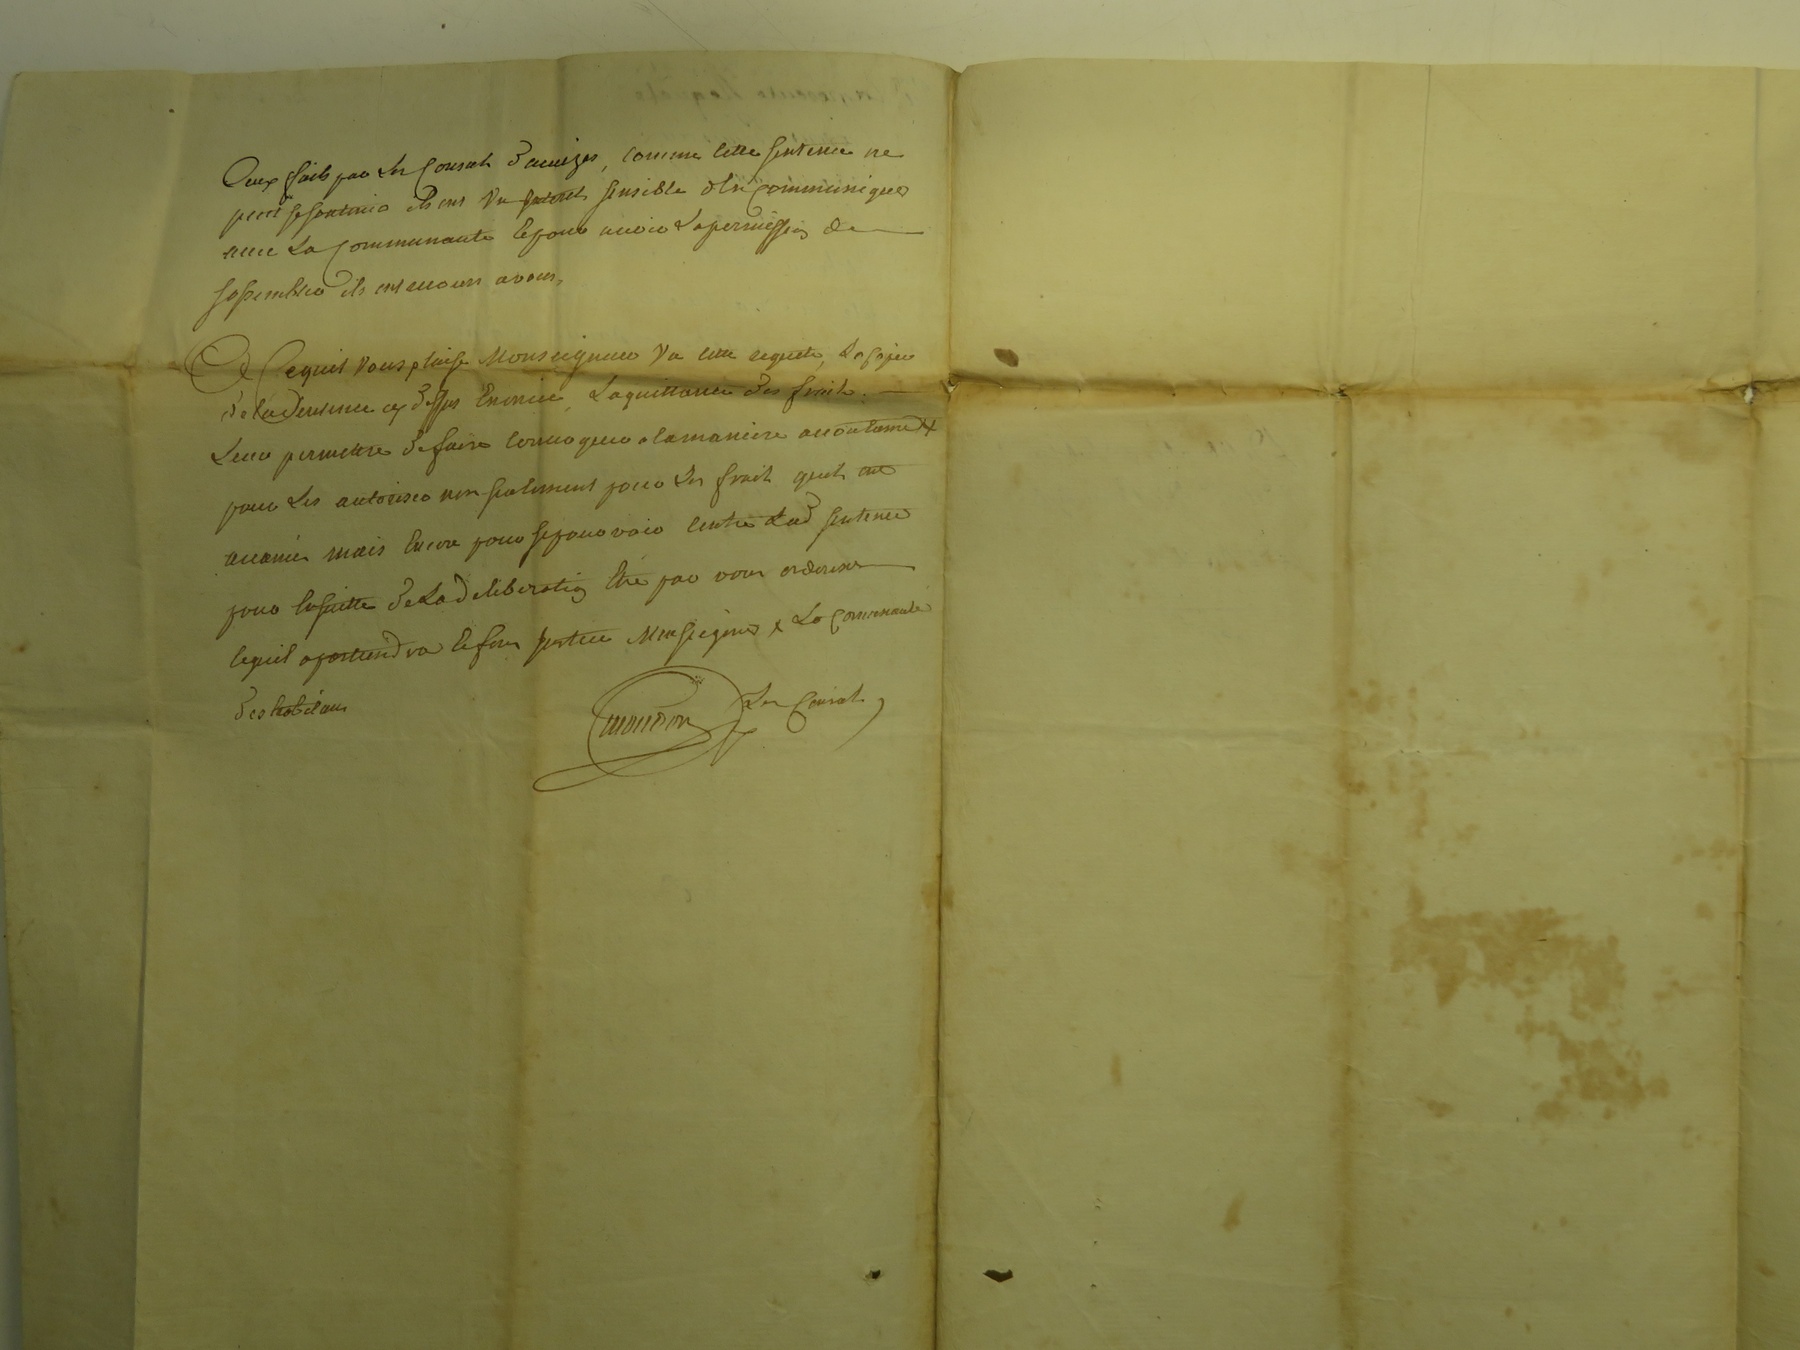 Ceux faits par Les Consuls d'auriges, comme cette sentence ne
peut se soutenir ils ont Un interet sensible dela Communiquer
avec La Communauté Et pour avoir La permission de
sassembler ils ont recours a vous,
A Cequil Vous plaise Monseigneur Vu cette requete, La Copie
de la dsentence cy dessus Enoncée, La quittance des fraits
Leur permettre de faire Convoquer a lamaniere accoutumée
pour Les autoriser non seulement pour Les frait quils ont
mais Encore pour se pourvoir Contre Lad sentence
pour Ensuitte de La deliberation Etre par vous ordonné
Cequil apartiendra Et feres justice Monseigneur & La Communauté
des habitans
mondon Les Consuls